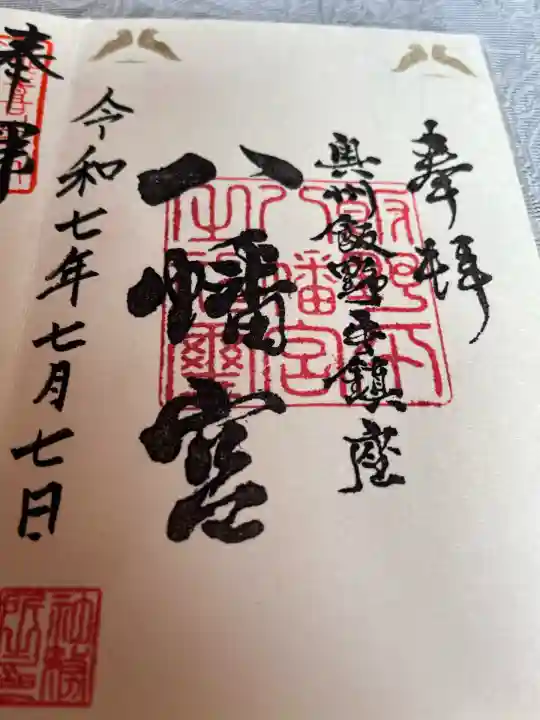 奉拝
奥州飯野平鎮座
八幡宮
令和七年七月七日
八幡宮
奉拝